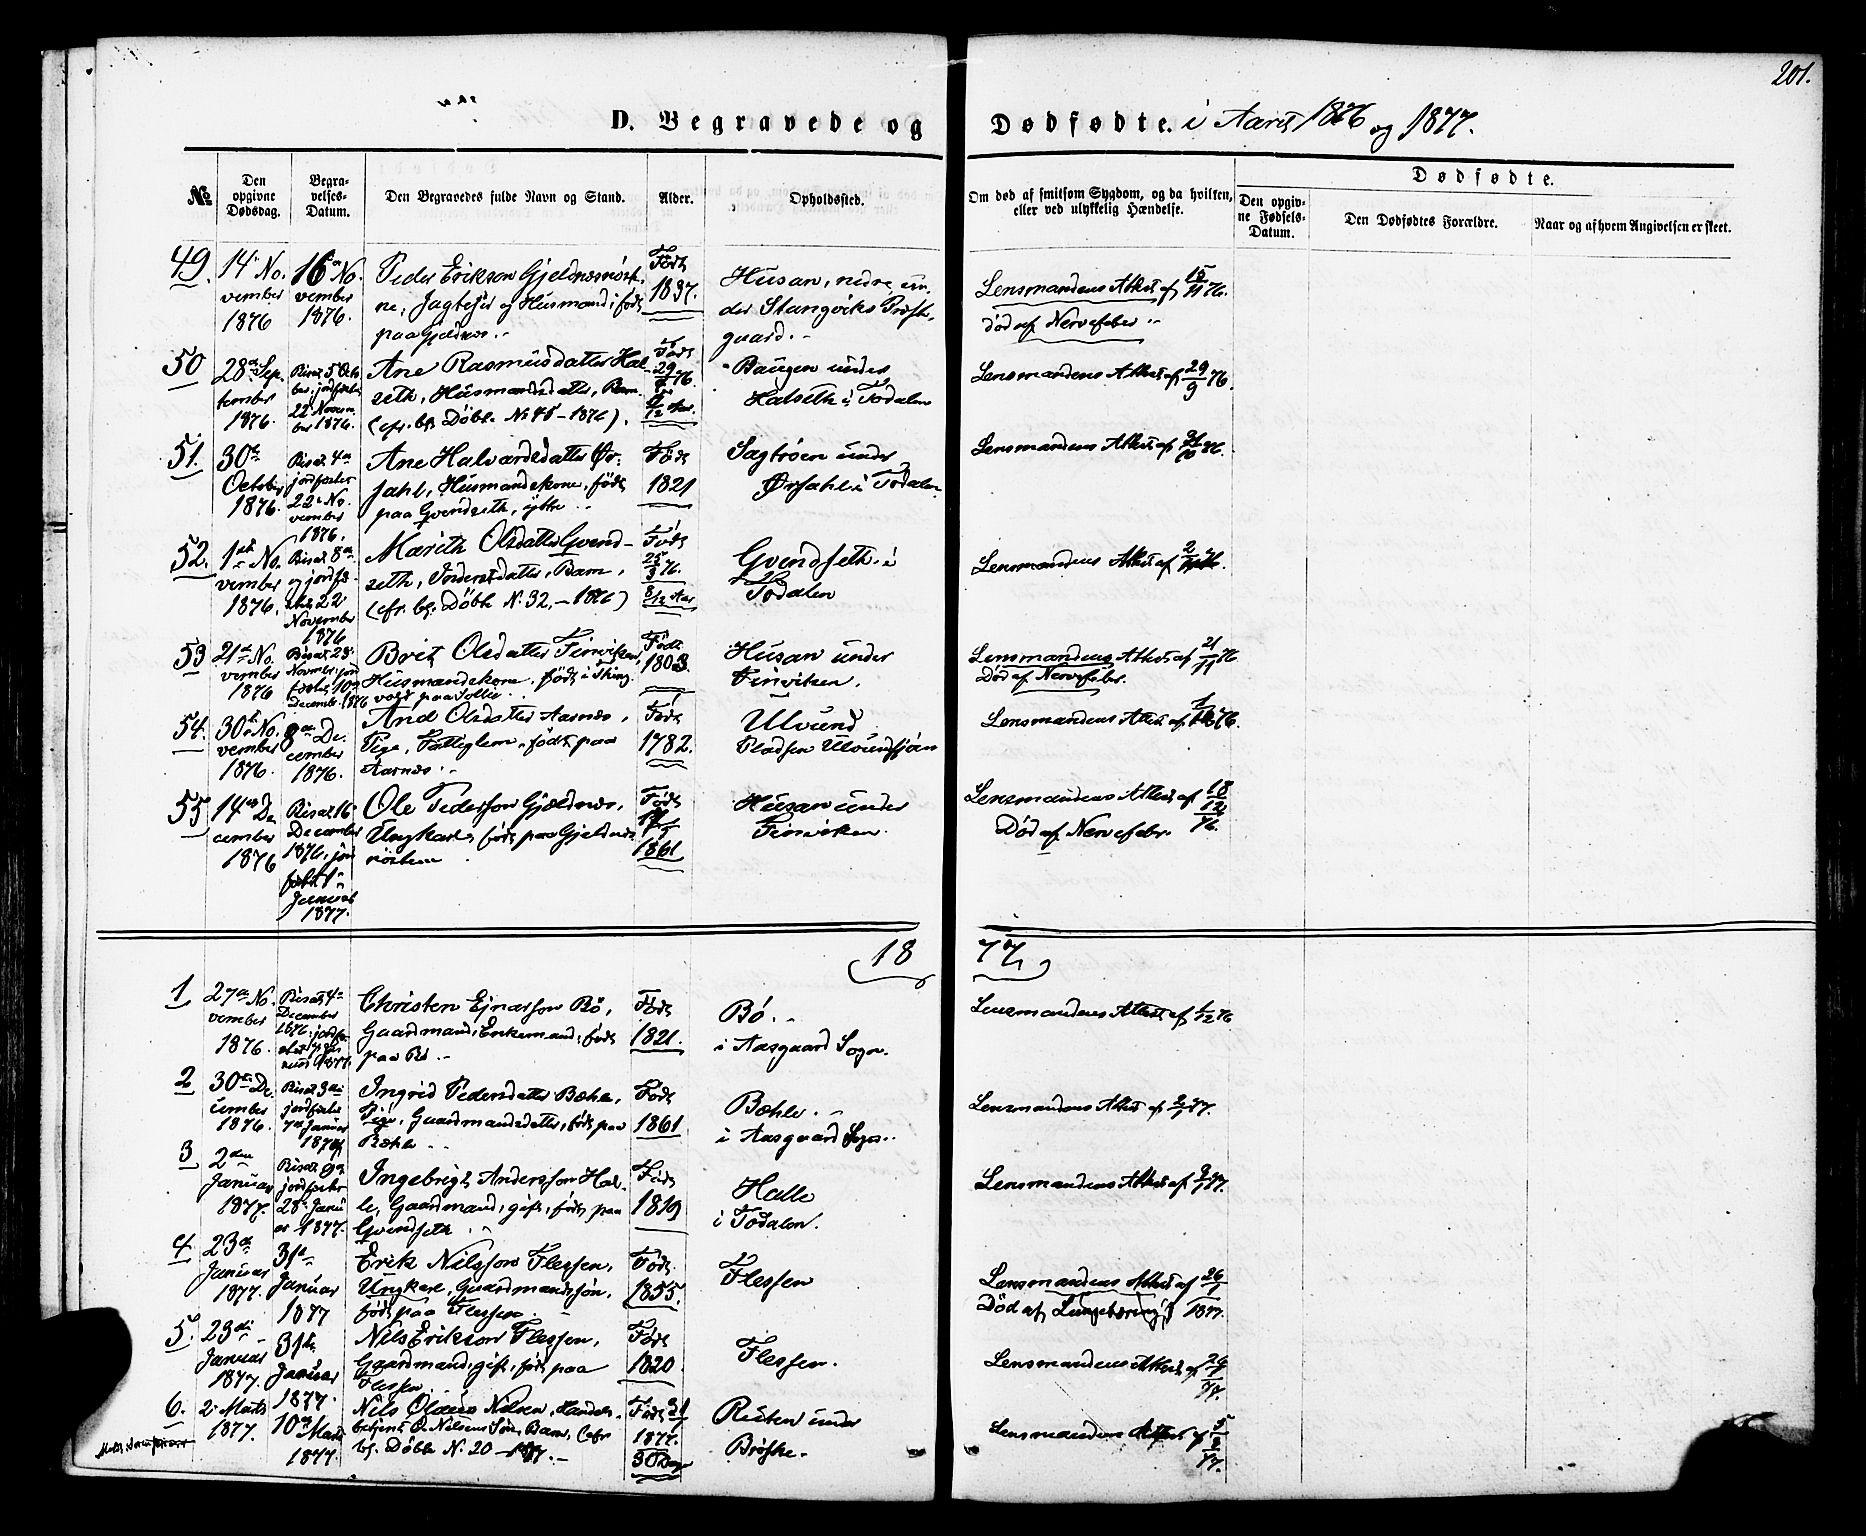 201.
D. Begravede og Dødfødte. i Aaret 1876 og 1877.
No
Den opgivne Dødsdag.
Begravelses-Datum.
Den Begravedes fulde Navn og Stand.
Alder.
Opholdssted.
Om død af smitsom Sygdom, og da hvilken, eller ved ulykkelig Hændelse.
Dødfødte.
Den opgivne Fødsels-Datum.
Den Dødfødtes Forældre.
Naar og af hvem Angivelsen er skeet.
49.
14de November 1876
16de November 1876.
Peder Erikson Gjeldnæs
og Husmand; født
paa Gjeldnæs.
Født
1837.
Husan, nedre, un-
der Stangviks Præste-
gaard.
Lensmandens Attest af 15/11 76.
død af Nervefeber
50
28de September 1876.
Biset 5 October, jordfæstet 22 November 1876.
Ane Rasmusdatter Hal-
seth, Husmandsdatter, Barn
(cfr. bg. Døbte No
Født
Haugen under
Halseth i Todalen
Lensmandens Attest af 29/9 76.
51.
30te October 1876.
Biset 4de jordfæstet 22de November 1876.
Ane Halvardsdatter Ør-
sahl, Husmandskone, født
paa Gvendseth, ytte
Født
1821
Sagtrøen under
Ørsahl i Todalen
Lensmandens Attest af 31/10 76.
52.
1ste November 1876.
Biset 8de og jordfæstet 22 November 1876
Marith Olsdatter Gvend-
seth, Inderstdatter, Barn,
(cfr. bg. Døbte No. 32, - 1876)
Født
25/3 76.
8/12 Aar
Gvendseth i
Todalen
Lensmandens Attest af
53
21de November 1876
Biset 28. November jordfæstet 10 December 1876
Brit Olsdatter Finviken,
Husmandskone, født i Ting-
vold paa
Født
1803.
Husan under
Finviken.
Lensmandens Attest af 21/11 76
Død af Nervefeber.
54.
30te November 1876.
8de December 1876.
Ane Olsdatter Aarnæs,
Pige, Fattiglem, født paa
Aarnæs
Født
1782.
Ulvund
Pladsen Ulvundsjøen
Lensmandens Attest af
55
14de December 1876
Biset 16 December 1876, jordfæstet 1 Januar 1877.
Ole Pedersson Gjeldnæs,
Ungkarl, født paa Gjeldnæs-
Født
1861
Husan under
Finviken.
Lensmandens Attest af 18/12 76.
Død af Nervefebr.
1877
1
27de November 1876.
Biset 4de December 1876, jordfæstet 7 Januar 1877.
Christen Ejnarson Bø,
Gaardmand, Enkemand; født
paa Bø
Født
1821.
Bø.
i Aasgaard Sogn.
Lensmandens Attest af 1/12 76
2
30te December 1876.
Biset 3die jordfæstet 7de Januar 1877
Ingrid Pedersdatter Bæhle,
Pige, Gaardmandsdatter, født paa
Bæhle
Født
1861
Bæhle.
i Aasgaard Sogn.
Lensmandens Attest af 2/1 77.
3
2den Januar 1877.
Biset 9de jordfæstet 28de Januar 1877.
Ingebrigt Andersson Hal-
le, Gaardmand, gift, født paa
Gvendseth
Født
1819
Halle
i Todalen.
Lensmandens Attest af 9/1 77.
4
23de Januar 1877.
31te Januar 1877
Erik Nilsson Flessen,
Ungkarl, Gaardmandssøn,
født paa Flessen
Født
1855.
Flessen
Lensmandens Attest af 26/1 1877.
Død af
5.
23de Januar 1877.
31te Januar 1877.
Nils Erikson Flessen,
Gaardmand, gift, født paa
Flessen
Født
1820
Flessen.
Lensmandens Attest af
6.
2. Marts 1877.
10de Marts 1877
Nils Olaus Nilsen, Handels-
betjent O. Nilsens Søn, Barn, (cfr
bg. Døbte No. 20 - 1877.
Født
1877.
30 Dage
Røsten under
Brøske.
Lensmandens Attest af